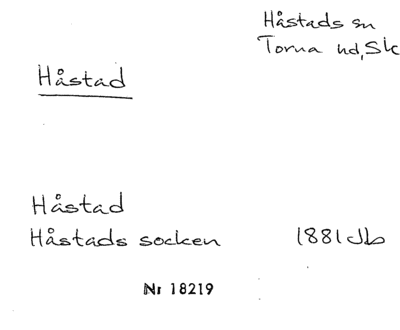 Håstads sn
Torna hd, Sk
Håstad
Håstad
Håstads socken 1881 Jb
Nr 18219